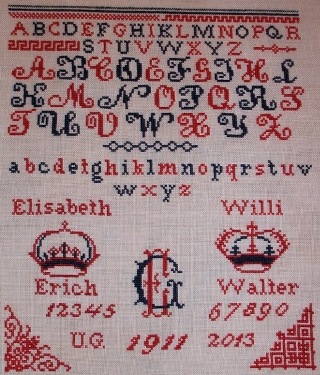 ABCDEFGHIKLMNOPQR
STUVWXYZ
ABCDEFGIHL
KMNOPQRS
TUVWXYZ
abcdefghiklmnopqrstuv
wxyz
Elisabeth Willi
Erich Walter
12345 67890
G
U.G. 1911 2013